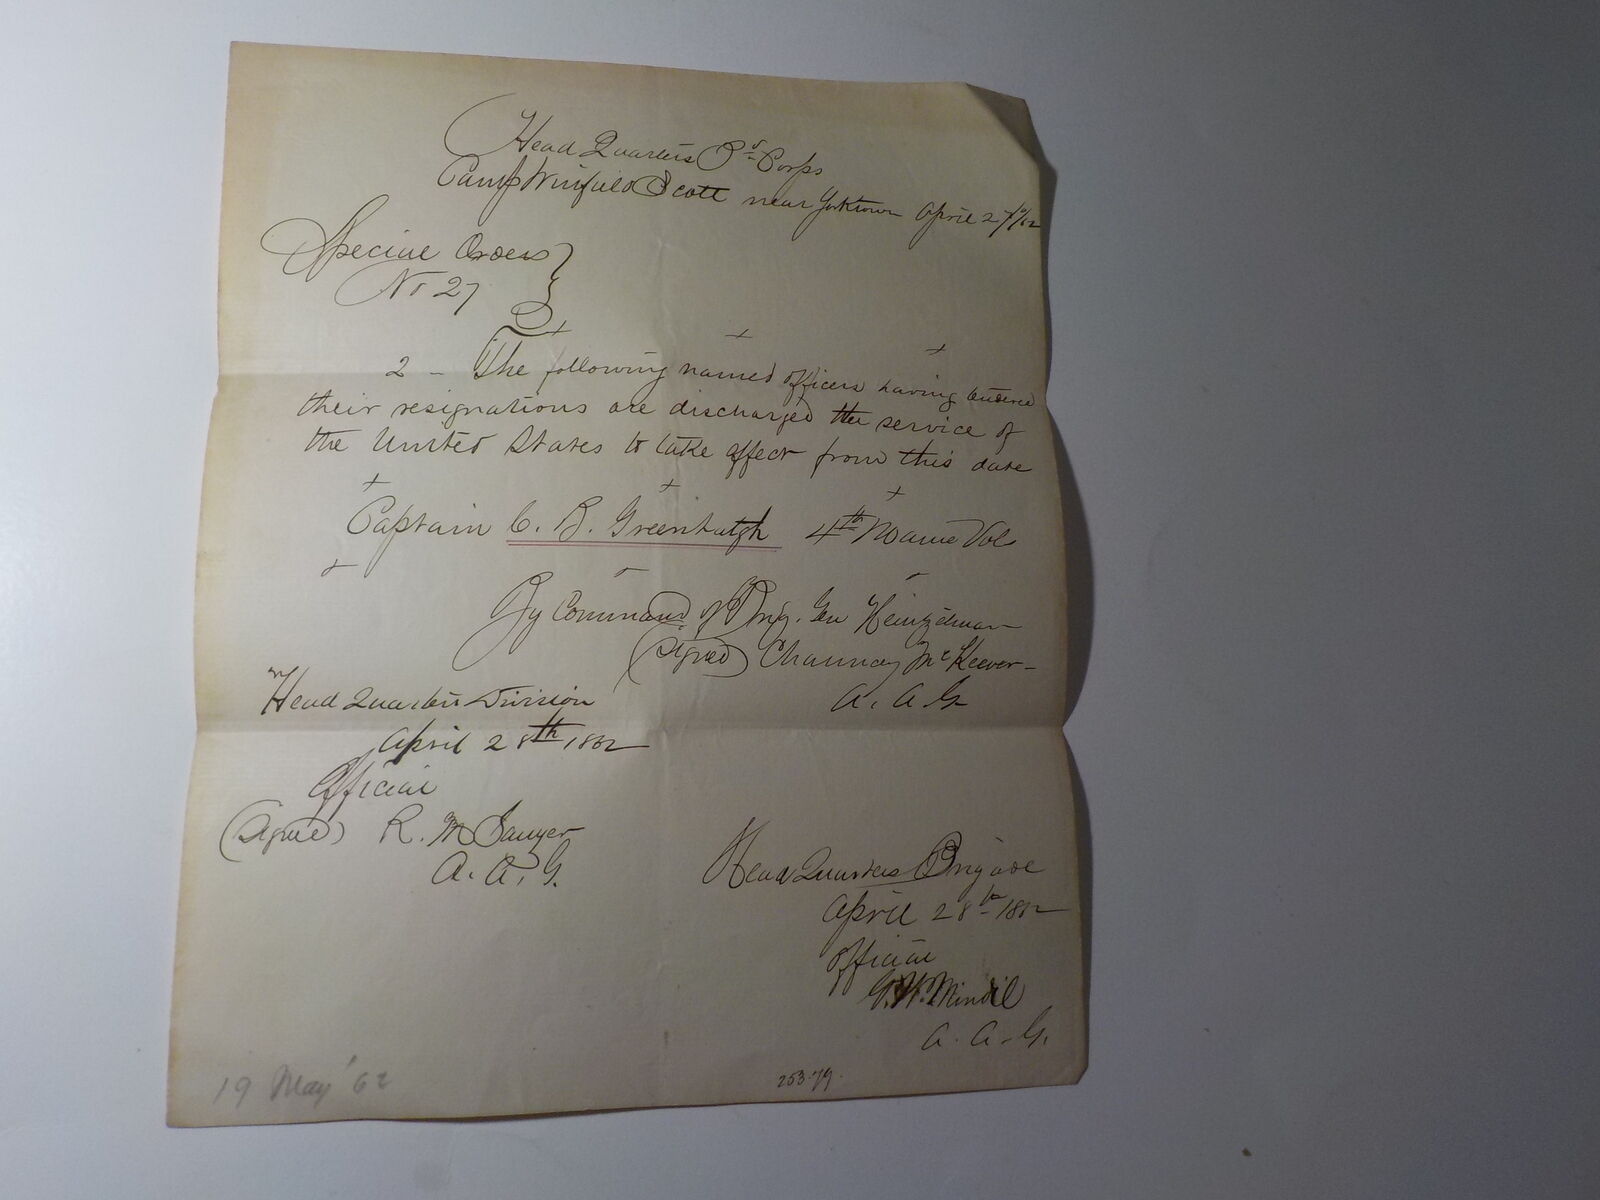 Head Quarters 3d Corps
Camp Winfield Scott near Yorktown April 27th/62
Special Orders
No 27
2 - The following named officers having tendered
their resignations are discharged the service of
the United States to take effect from this date
Captain C. B. Greenhalgh 4th Maine Vols
By Command of Brig. Gen Heintzelman
(Signed) Chauncey McKeever
A. A. G
Head Quarters Division
April 28th 1862
Official
(Signed) R. M Sawyer
A. A. G.
Head Quarters Brigade
April 28th 1862
Official
G. W. Mindil
A. A. G.
19 May '62
253.79.